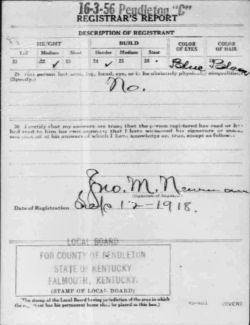 16-3-56 Pendleton "C"
REGISTRAR'S REPORT
DESCRIPTION OF REGISTRANT
HEIGHT BUILD COLOR OF EYES COLOR OF HAIR
Tall Medium Short Slender Medium Stout
21 22 ✓ 23 24 ✓ 25 26 Blue
29 Has person lost arm, leg, hand, eye, or is he obviously physically disqualified?
(Specify.)
No.
30 I certify that my answers are true; that the person registered has read or has
had read to him his own answers; that I have witnessed his signature or mark,
and that all of his answers of which I have knowledge are true, except as follows:
Geo. M. Newman
Date of Registration Sep 12-1918.
LOCAL BOARD
FOR COUNTY OF PENDLETON
STATE OF KENTUCKY
FALMOUTH, KENTUCKY.
(STAMP OF LOCAL BOARD)
(The stamp of the Local Board having jurisdiction of the area in which
the registrant has his permanent home shall be placed in this box.)
(OVER)